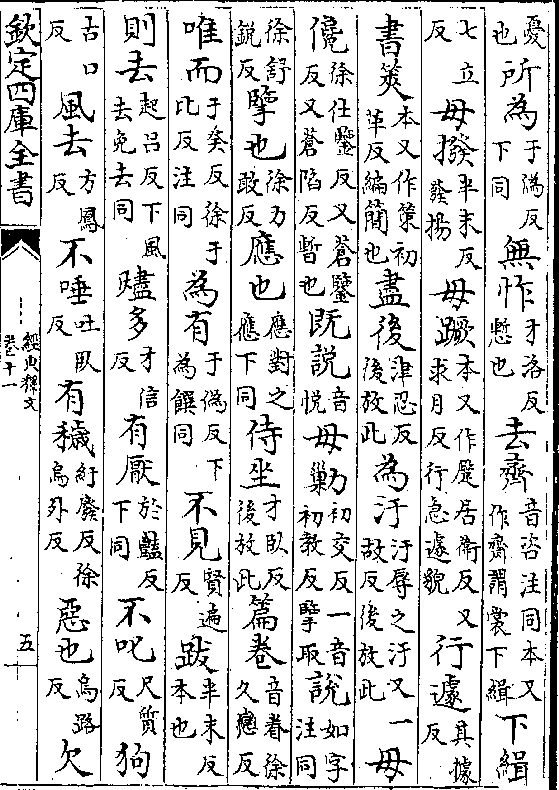 憂也所為于偽反下同無怍才洛反慙也去齊音咨注同本又作齊謂裳下緝下緝
七立反毋撥半末反發揚毋蹶本又作蹷居衛反又求月反行急遽貌行遽其據反
書筴本又作筞初革反編簡也盡後津忍反後放此為汙汙辱之汙又一故反後放此毋
儳徐仕鑒反又蒼鑒反又蒼陷反暫也既說音悅毋勦初交反一音初教反擥取說如字注同
徐舒銳反擥也徐力敢反應也應對之應下同侍坐才臥反後放此篇卷音眷徐久戀反
唯而于癸反徐于比反注同為有于偽反下為饌同不見賢遍反跋半末反本也
則去起呂反下風去免去同燼多才信反有厭於豔反下同不叱尺質反狗
古口反風去方鳳反不唾吐臥反有穢紆廢反徐烏外反惡也烏路反欠
欽定四庫全書
經典釋文
卷十一
五